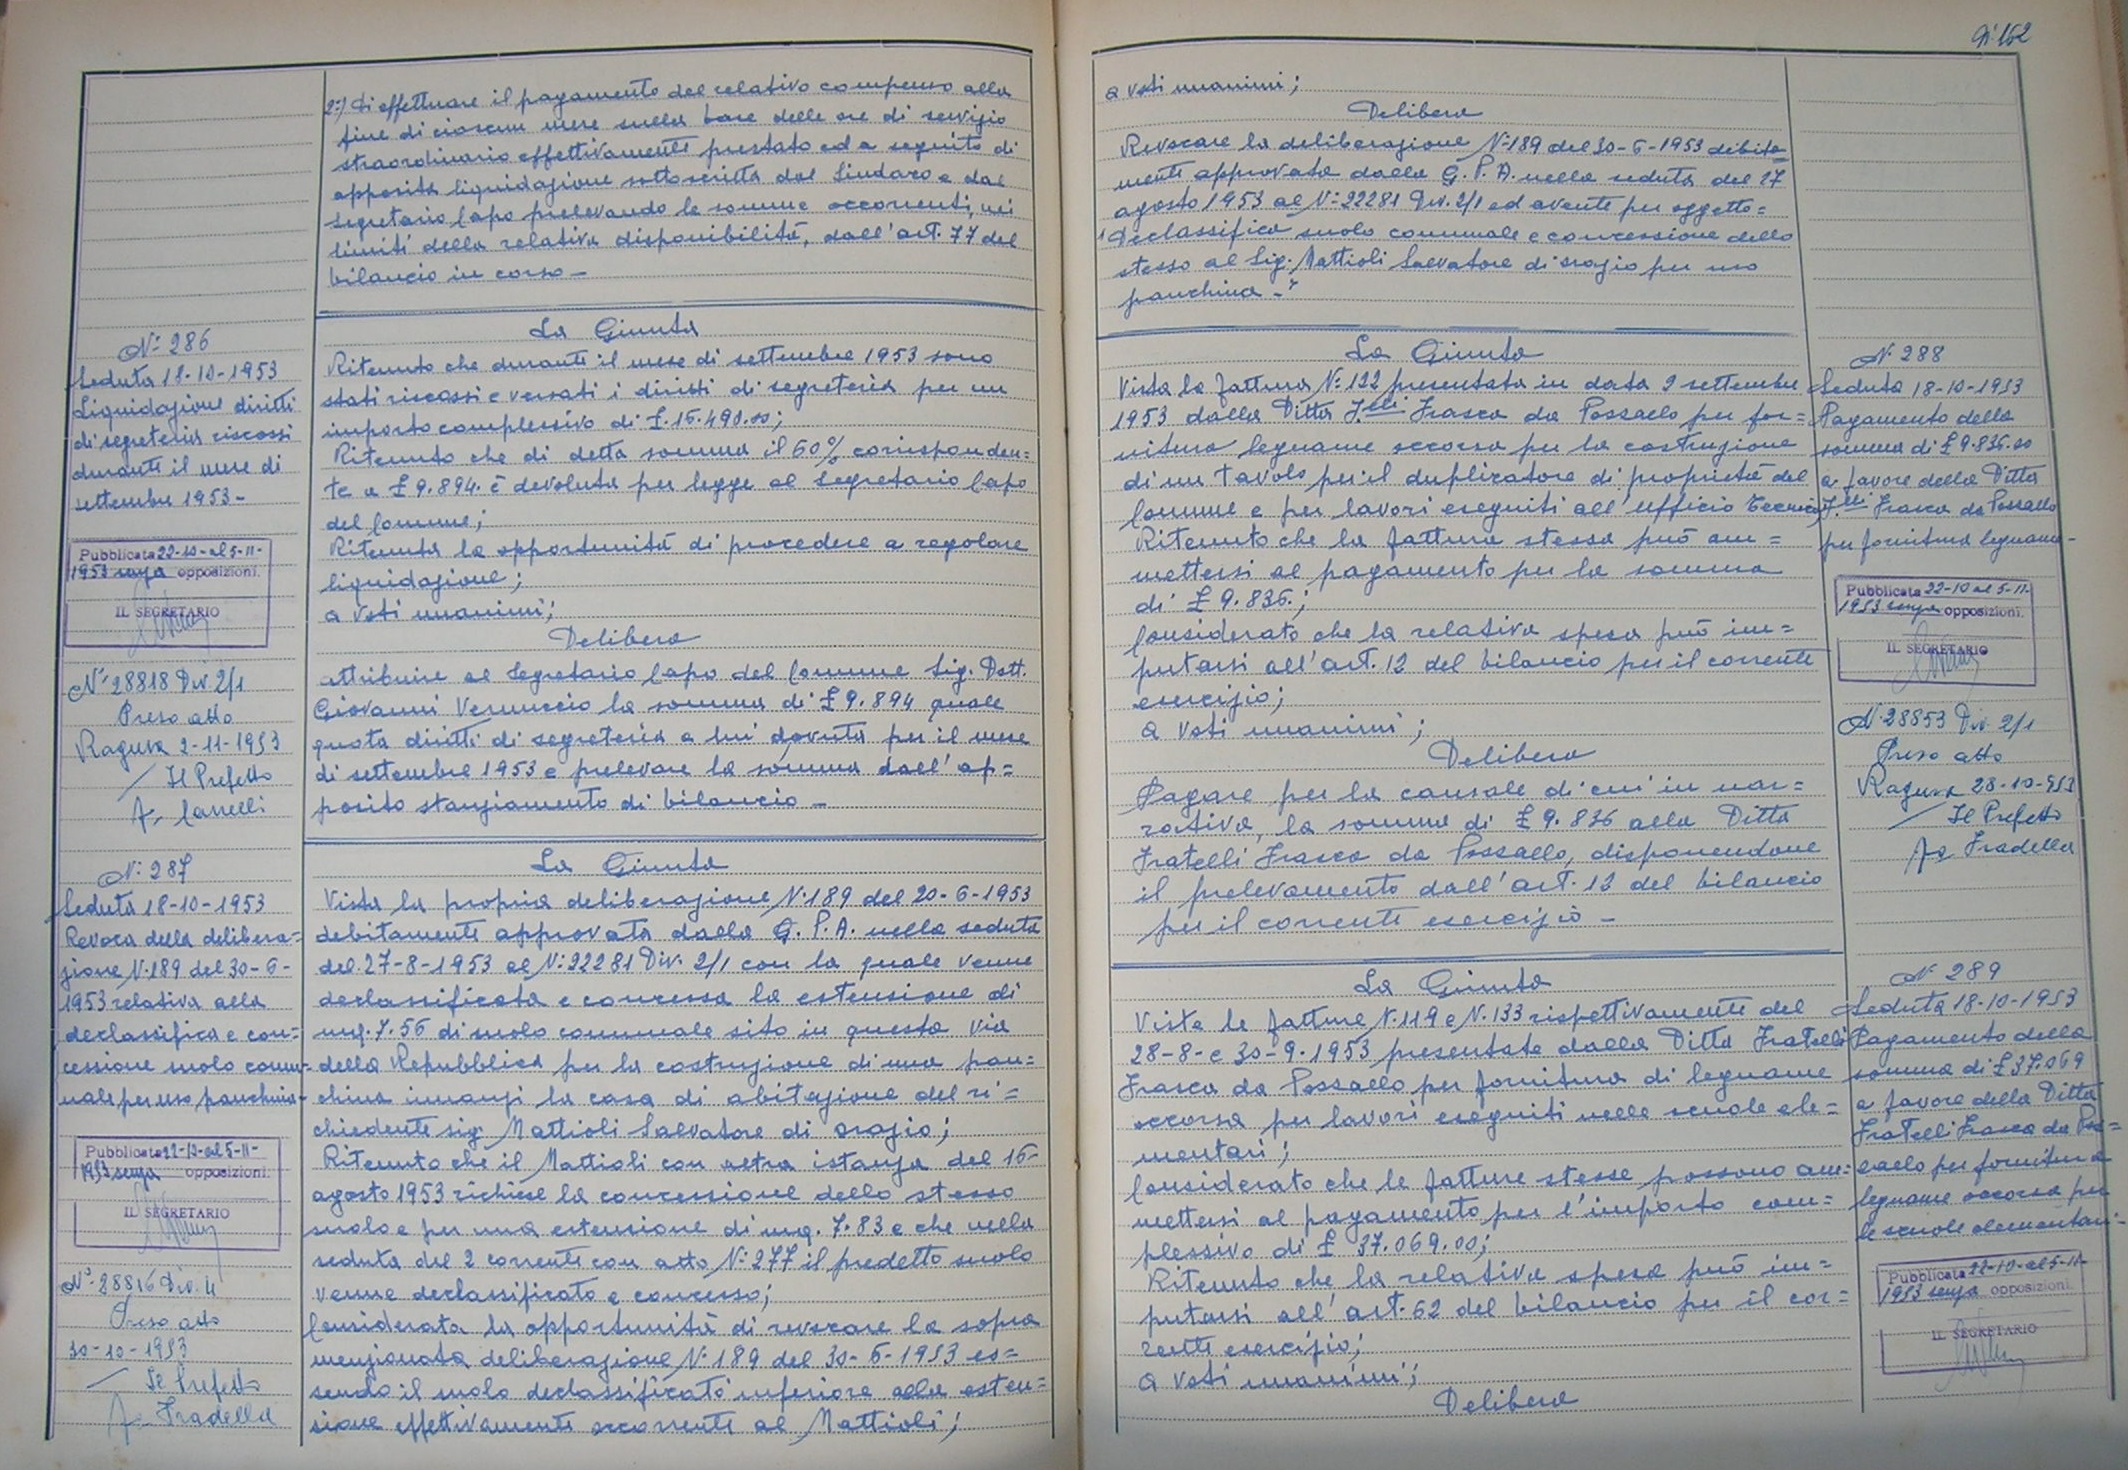 2°) Di effettuare il pagamento del relativo compenso alla
fine di ciascun mese sulla base delle ore di servizio
straordinario effettivamente prestato ed a seguito di
apposita liquidazione sottoscritta dal Sindaco e dal
Segretario Capo prelevando le somme occorrenti, nei
limiti della relativa disponibilità, dall'art. 77 del
bilancio in corso -
N° 286
Seduta 18-10-1953
Liquidazione diritti
di segreteria riscossi
durante il mese di
settembre 1953 -
Pubblicata 22-10- al 5-11-
1953 senza opposizioni.
IL SEGRETARIO
N° 28818 Div. 2/1
Preso atto
Ragusa 2-11-1953
Il Prefetto
La Giunta
Ritenuto che durante il mese di settembre 1953 sono
stati riscossi e versati i diritti di segreteria per un
importo complessivo di £. 16.490.00;
Ritenuto che di detta somma il 60% corrisponden=
te a £ 9.894. è devoluta per legge al Segretario Capo
del Comune;
Ritenuta la opportunità di procedere a regolare
liquidazione;
a voti unanimi;
Delibera
attribuire al Segretario Capo del Comune Sig. Dott.
Giovanni Vernuccio la somma di £ 9.894 quale
quota diritti di segreteria a lui dovuta per il mese
di settembre 1953 e prelevare la somma dall'ap=
posito stanziamento di bilancio -
N° 287
Seduta 18-10-1953
Revoca della delibera=
zione N. 189 del 30-6-
1953 relativa alla
declassifica e con=
cessione suolo comu=
nale per uso panchina -
Pubblicata 22-10- al 5-11-
1953 senza opposizioni.
IL SEGRETARIO
N° 28816 Div. 4
Preso atto
30-10-1953
Il Prefetto
Fradella
La Giunta
Vista la propria deliberazione N. 189 del 20-6-1953
debitamente approvata dalla G. P. A. nella seduta
del 27-8-1953 al N: 22281 Div. 2/1 con la quale venne
declassificata e concessa la estensione di
mq. 7.56 di suolo comunale sito in questa via
della Repubblica per la costruzione di una pan=
china innanzi la casa di abitazione del ri=
chiedente sig. Mattioli Salvatore di Orazio;
Ritenuto che il Mattioli con altra istanza del 16-
agosto 1953 richiese la concessione dello stesso
suolo e per una estensione di mq. 7.83 e che nella
seduta del 2 corrente con atto N° 277 il predetto suolo
venne declassificato e concesso;
Considerata la opportunità di revocare la sopra
menzionata deliberazione N. 189 del 30-6-1953 es=
sendo il suolo declassificato inferiore alla esten=
sione effettivamente occorrente al Mattioli;
N. 162
a voti unanimi;
Delibera
Revocare la deliberazione N. 189 del 30-6-1953 debita=
mente approvata dalla G. P. A. nella seduta del 27
agosto 1953 al N° 22281 Div. 2/1 ed avente per oggetto=
"Declassifica suolo comunale e concessione dello
stesso al Sig. Mattioli Salvatore di Orazio per uso
panchina -"
La Giunta
Vista la fattura N° 122 presentata in data 2 settembre
1953 dalla Ditta F.lli Frasca da Possallo per for=
nitura legname occorso per la costruzione
di un tavolo per il duplicatore di proprietà del
Comune e per lavori eseguiti all'ufficio tecnico;
Ritenuto che la fattura stessa può am=
mettersi al pagamento per la somma
di £ 9.836.;
Considerato che la relativa spesa può im=
putarsi all'art. 12 del bilancio per il corrente
esercizio;
a voti unanimi;
Delibera
Pagare per la causale di cui in nar=
rativa, la somma di £ 9.836 alla Ditta
Fratelli Frasca da Possallo, disponendone
il prelevamento dall'art. 12 del bilancio
per il corrente esercizio -
N. 288
Seduta 18-10-1953
Pagamento della
somma di £ 9.836.00
a favore della Ditta
F.lli Frasca da Possallo
per fornitura legname -
Pubblicata 22-10 al 5-11-
1953 senza opposizioni.
IL SEGRETARIO
N. 28853 Div. 2/1
Preso atto
Ragusa 28-10-953
Il Prefetto
Fradella
La Giunta
Viste le fatture N. 119 e N. 133 rispettivamente del
28-8- e 30-9-1953 presentate dalla Ditta Fratelli
Frasca da Possallo per fornitura di legname
occorso per lavori eseguiti nelle scuole ele=
mentari;
Considerato che le fatture stesse possono am=
mettersi al pagamento per l'importo com=
plessivo di £ 37.069.00;
Ritenuto che la relativa spesa può im=
putarsi all'art. 62 del bilancio per il cor=
rente esercizio;
a voti unanimi;
Delibera
N. 289
Seduta 18-10-1953
Pagamento della
somma di £ 37.069
a favore della Ditta
Fratelli Frasca da Pos=
sallo per fornitura
legname occorso per
le scuole elementari -
Pubblicata 22-10- al 5-11-
1953 senza opposizioni.
IL SEGRETARIO